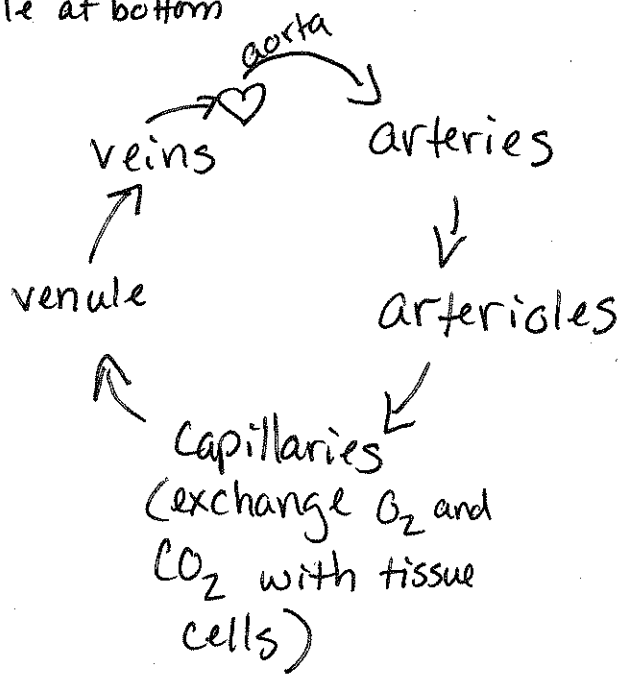 le at bottom
aorta
veins
arteries
venule
arterioles
Capillaries
(exchange O₂ and
CO₂ with tissue
cells)